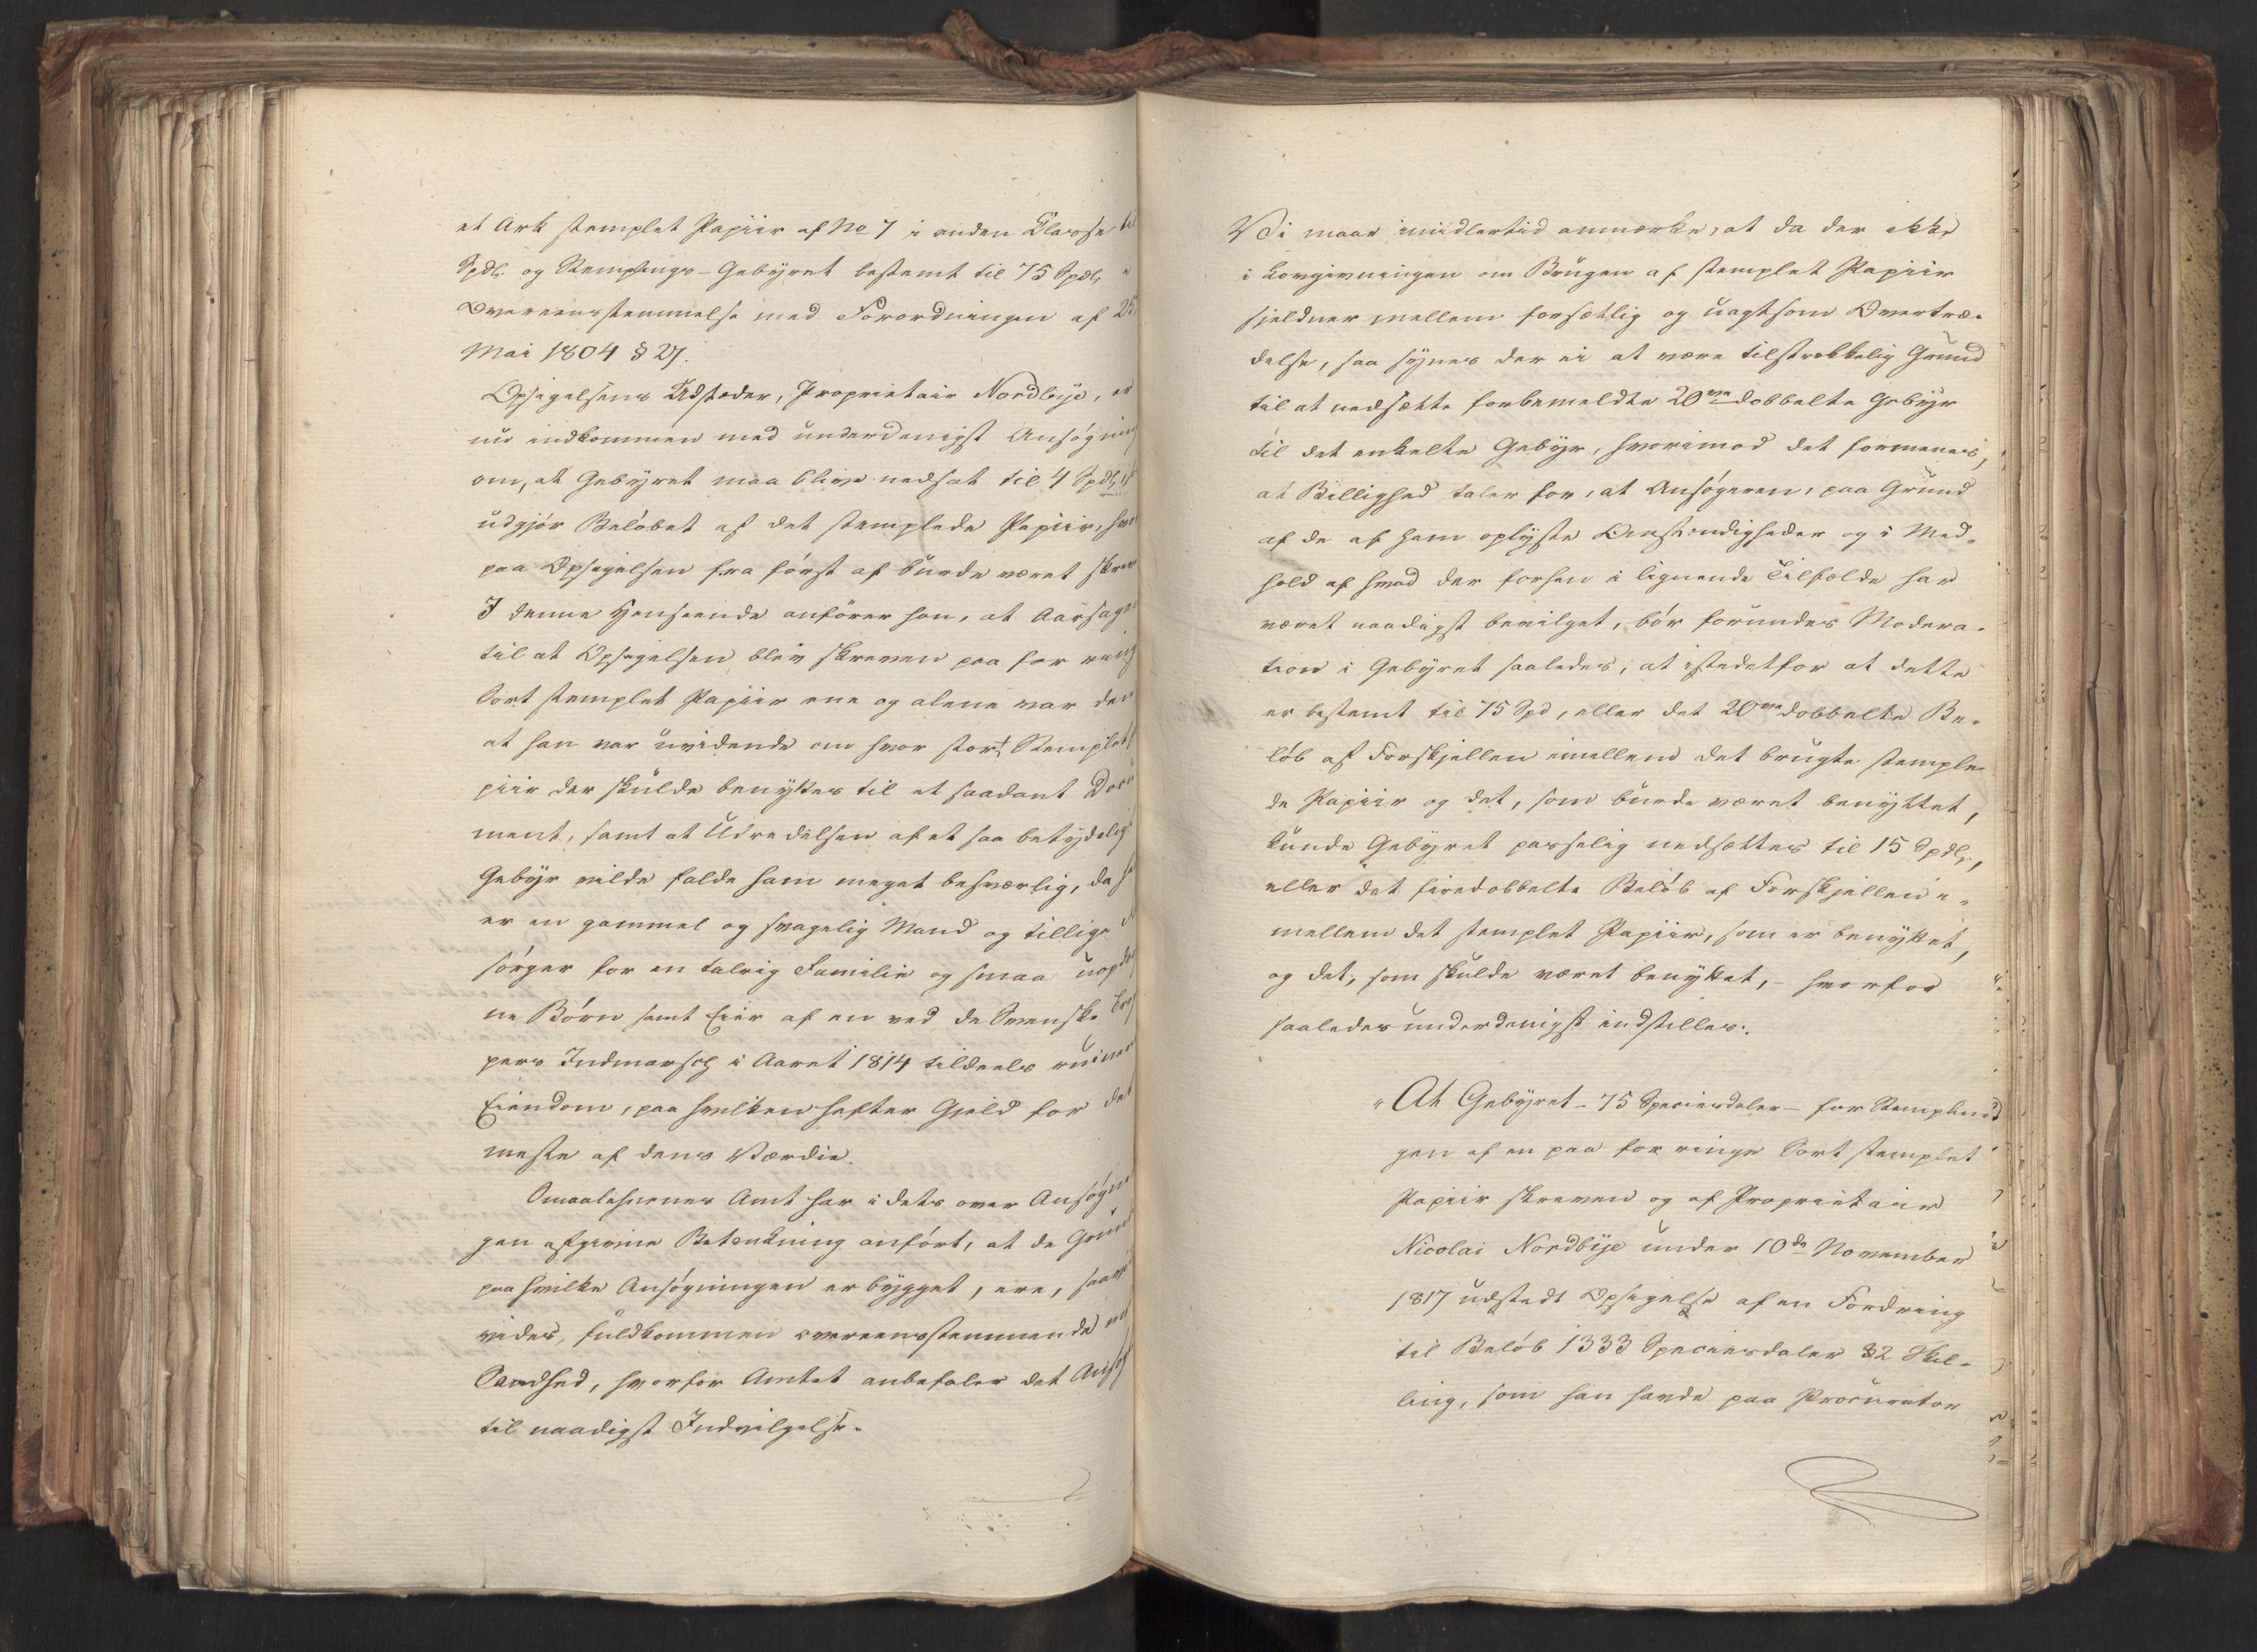 et Ark stemplet Papiir af No 7 i anden Classe til
Spdlr. og Stemplings-Gebyret bestemt til 75 Spdlr. i
Overeensstemmelse med Forordningen af 25
Mai 1804 § 27.
Opsigelsens Udsteder, Proprietair Nordbye, er
nu indkommen med underdanigst Ansøgning
om, at Gebyret maa blive nedsat til 4 Spdlr,
udgjør Beløbet af det stemplede Papiir, hvor
paa Opsigelsen fra først af burde været skrev
I denne Henseende anfører han, at Aarsagen
til at Opsigelsen blev skreven paa for ring
Sort stemplet Papiir ene og alene var den
at han var uvidende om hvor stort Stemplet
piir der skulde benyttes til et saadant Docu
ment, samt at Udredelsen af et saa betydelig
Gebyr vilde falde ham meget besværlig, da
er en gammel og svagelig Mand og tillige
sørger for en talrig Familie og smaa uop
ne Børn samt Eier af en ved de Svenske
pers Indmarsch i Aaret 1814 tildeels ruiner
Eiendom, paa hvilken hefter Gjeld for det
meste af dens Værdie.
Smaalehnenes Amt har i dets over Ansøgnin
gen afgivne Betænkning anført, at de Grund
paa hvilke Ansøgningen er bygget, ere, saavi
vides, fuldkommen overeensstemmende med
Sandhed, hvorfor Amtet anbefaler det Ansøg
til naadigst Indvilgelse.
Vi maae imidlertid anmærke, at da der ikke
i Lovgivningen om Brugen af stemplet Papiir
skjelnes mellem forsætlig og uagtsom Overtræ-
delse, saa synes der ei at være tilstrækkelig Grund
til at nedsætte forbemeldte 20ve dobbelte Gebyr
til det enkelte Gebyr, hvorimod det formenes,
at Billighed taler for, at Ansøgeren, paa Grund
af de af ham oplyste Omstændigheder og i Med-
hold af hvad der forhen i lignende Tilfælde har
været naadigst bevilget, bør forundes Modera-
tion i Gebyret saaledes, at istedetfor at dette
er bestemt til 75 Spd, eller det 20ve dobbelte Be-
løb af Forskjellen imellem det brugte stemple-
de Papiir og det, som burde været benyttet,
kunde Gebyret passelig nedsættes til 15 Spdlr,
eller det firedobbelte Beløb af Forskjellen i-
mellem det stemplet Papiir, som er benyttet,
og det, som skulde været benyttet, - hvorfor
saaledes underdanigst indstilles:
"At Gebyret - 75 Speciesdaler - for Stemplin-
gen af en paa for ringe Sort stemplet
Papiir skreven og af Proprietair
Nicolai Nordbye under 10de November
1817 udstedt Opsigelse af en Fordring
til Beløb 1333 Speciesdaler 32 Skil-
ling, som han havde paa Procurator